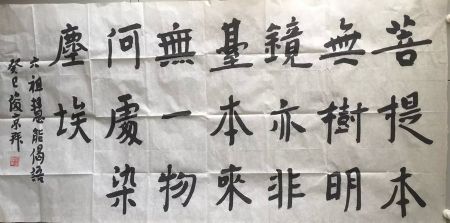 菩提本
無樹明
鏡亦非
臺本來
無一物
何處染
塵埃
六祖慧能偈語
癸巳京拜